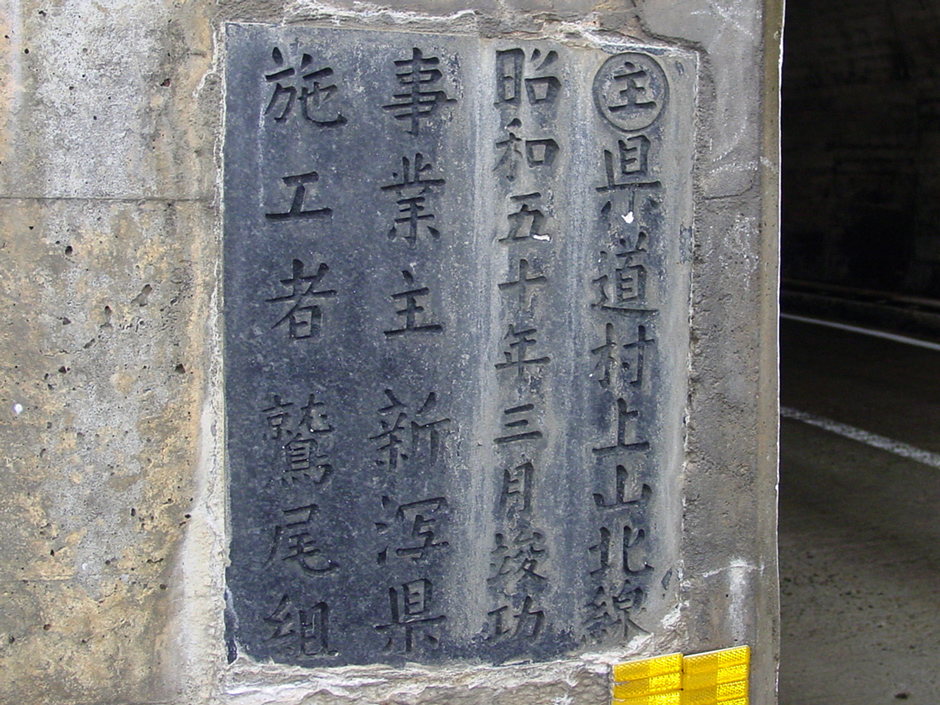 ㊟県道村上山北線
昭和五十年三月竣功
事業主 新泻県
施工者 鷲尾組